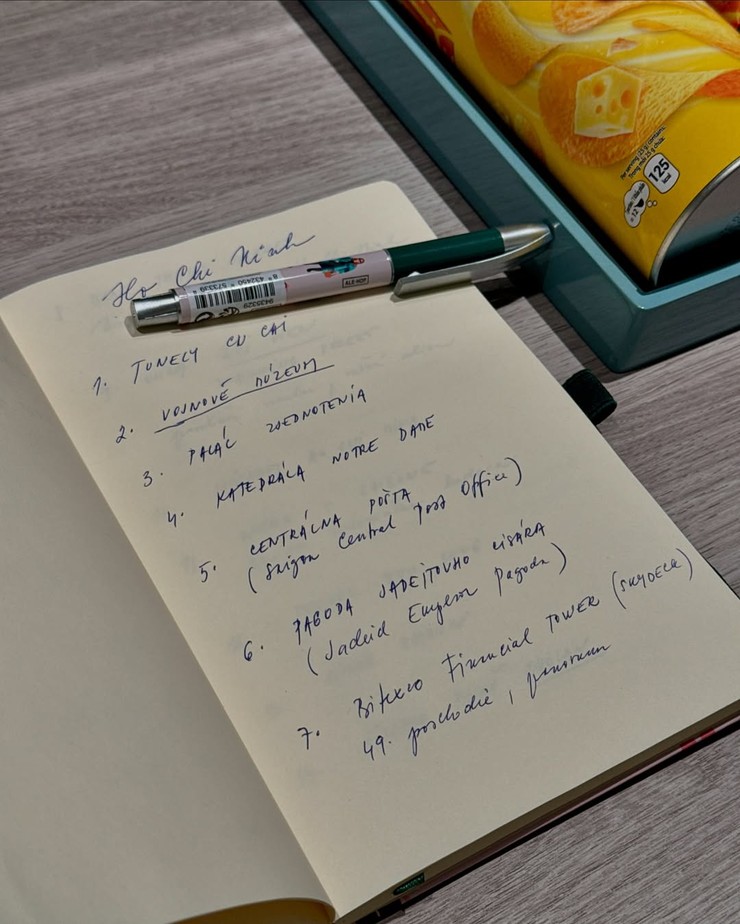 Ho Chi Minh
1. TUNELY CU CHI
2. VOJNOVÉ MÚZEUM
3. PALÁC ZJEDNOTENIA
4. KATEDRÁLA NOTRE DAME
5. CENTRÁLNA POŠTA
(Saigon Central Post Office)
6. PAGODA JADEJTOVHO CISÁRA
(Jadeid Emperor Pagoda)
7. Bitexco Financial TOWER (SKYDECK)
49. poschodie, panorama
ALE-HOP
8 432450 573339
9435329
125
kcal